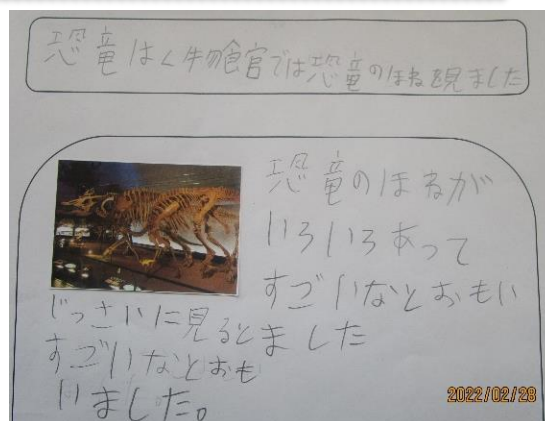 恐竜はく物食官では恐竜のほねを見ました
恐竜のほねが
いろいろあって
すごいなとおもい
ました
じっさいに見ると
すごいなとおも
いました。
2022/02/28